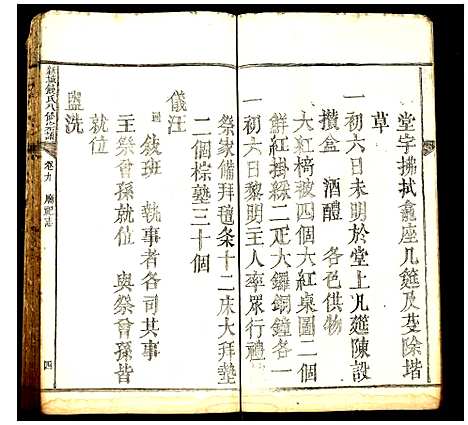 堂宇拂拭龕座几筵及芟除堦
草
一初六日未明於堂上几筵陳設
攢盒 酒醴 各色供物
大紅椅披四個大紅桌圍二個
鮮紅掛綵二疋大鑼銅鐘各一
一初六日黎明主人率眾行禮
祭家備拜氊条十二床大拜墊
二個棕墊三十個
儀注
敘班 執事者各司其事
主祭曾孫就位 與祭曾孫皆
就位
盥洗
錢氏八修宗譜 卷九 廟祀志 四